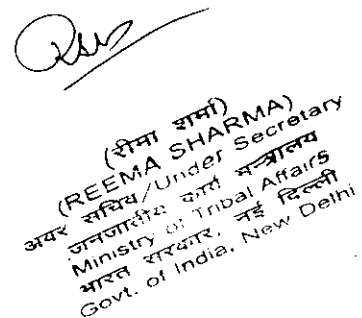 (रीमा शर्मा)
(REEMA SHARMA)
अवर सचिव/Under Secretary
जनजातीय कार्य मन्त्रालय
Ministry of Tribal Affairs
भारत सरकार, नई दिल्ली
Govt. of India, New Delhi